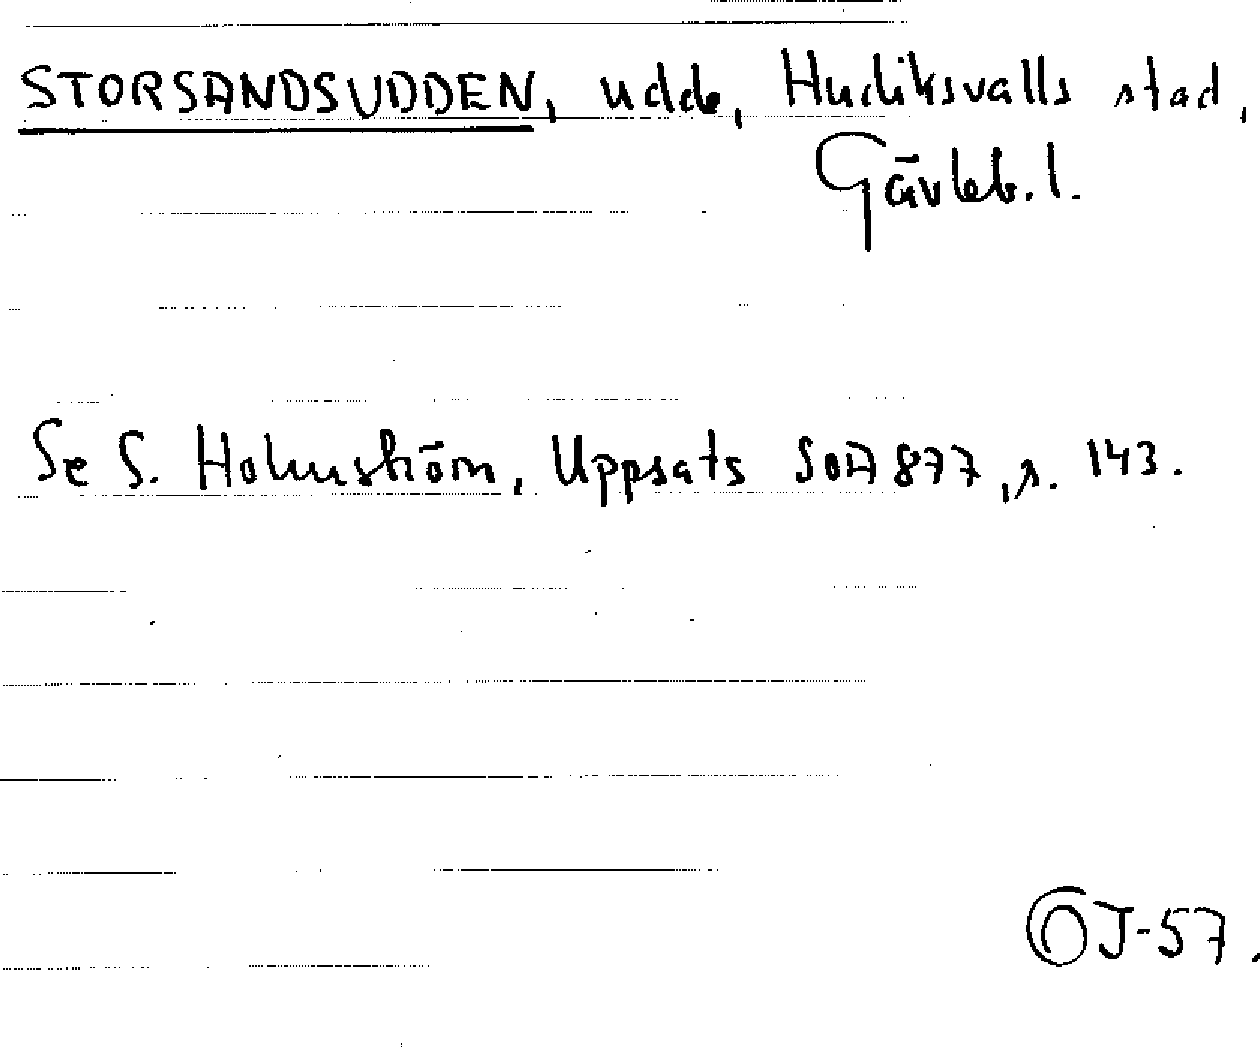 STORSANDSUDDEN, udde, Hudiksvalls stad,
Gävleb. l.
Se S. Holmström, Uppsats SOA 877, s. 143.
OJ-57.